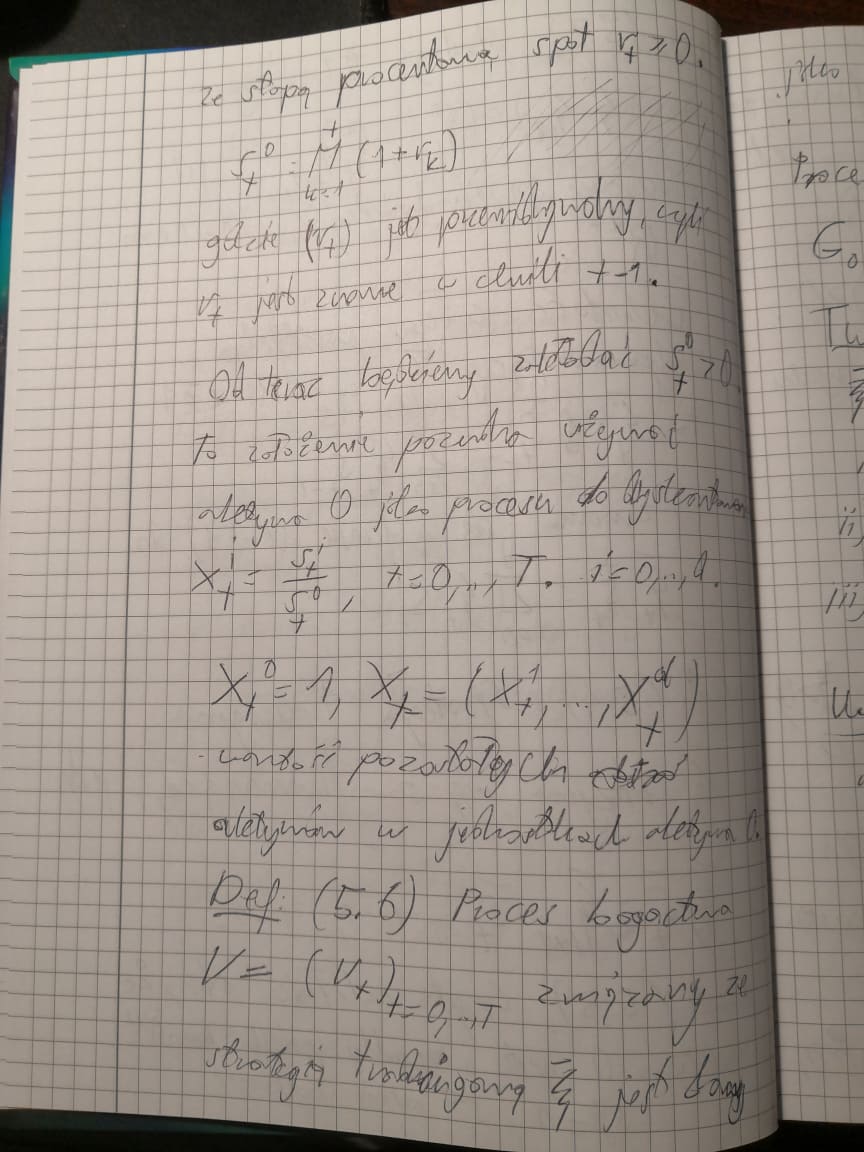 ze stopą procentową spot r_t ≥ 0.
S_t^0 = ∏_{k=1}^t (1+r_k)
gdzie (r_t) jest przewidywalny, czyli
r_t jest znane w chwili t-1.
Od teraz będziemy zakładać S_t^0 > 0
To założenie pozwala używać
aktywa 0 jako procesu do dyskontowania
X_t^i = S_t^i / S_t^0, t=0,..,T. i=0,..,d.
X_t^0 = 1, X_t = (X_t^1,...,X_t^d)
- wartość pozostałych
aktywów w jednostkach aktywa 0.
Def. (5.6) Proces bogactwa
V = (V_t)_{t=0,..,T} związany ze
strategią tradingową ξ̄ jest dany
Proce
G_0
Tw
ξ̄
ii,
iii,